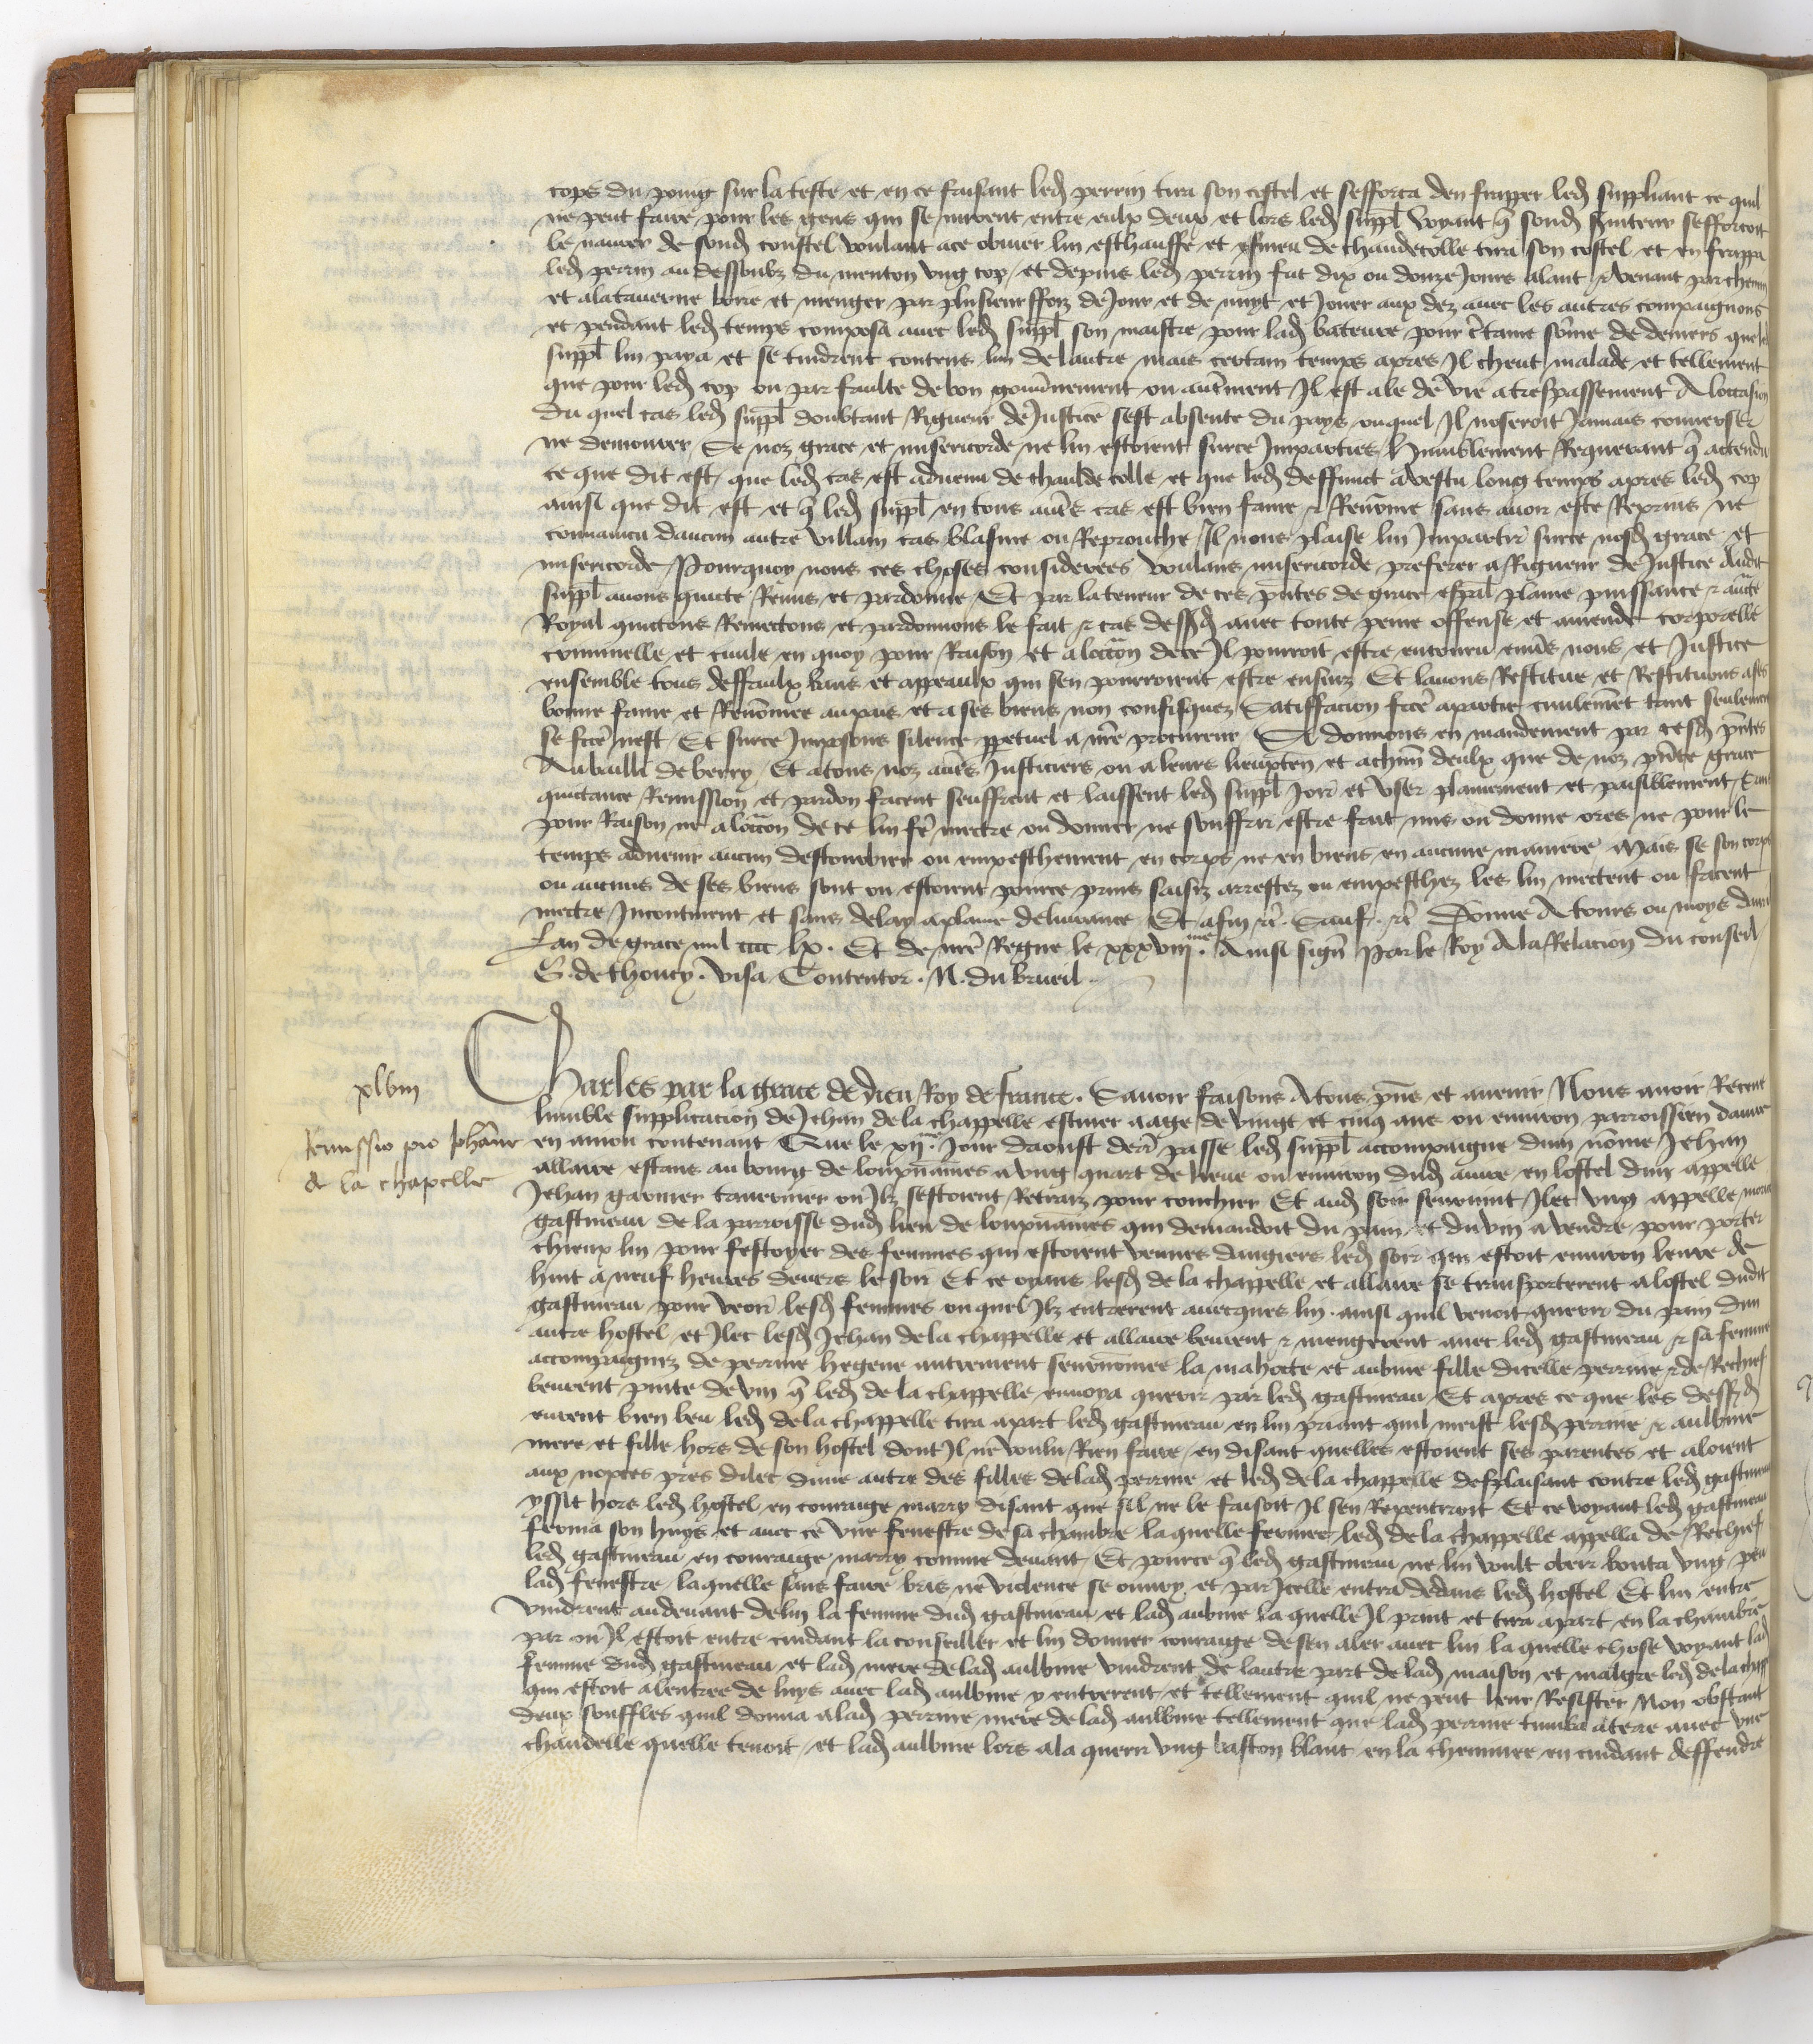 cops du poing sur la teste et en ce faisant led perrin tira son costel et sefforca den frapper led suppliant ce quil
ne peut faire pour les gens qui se mirent entre eulx deux et lors led suppl voyant q sond seruiteur sefforcoit
le naurer de sond coustel voulant ace obuier lui eschauffe et esmeu de chaudecolle tira son costel et en frappa
led perrin au dessoubz du menton vng cop / et depuis led perrin fut dix ou douze Jours alant & venant par chemin
et alatauerne boire et menger par plusieurs ffoiz de Jour et de nuyt et Jouer aux dez auec les autres compaignons
et pendant led temps composa auec led suppl son maistre pour lad bateure pour ctaine some de deniers que led
suppl lui paya et se tindrent contens lun de lautre mais certain temps apres Il cheut malade et tellement
que pour led cop ou par faulte de bon gouunement ou autment Il est ale de vie atrespassement A loccasion
du quel cas led suppl doubtant Rigueur de Justice sest absente du pays ouquel Il noseroit Jamais conuerser
ne demourer Se noz grace et misericorde ne lui estoient surce Imparties / Humblement Requerant q actendu
ce que dit est / que led cas est aduenu de chaulde colle et que led deffunct a vescu long temps apres led cop
ainsi que dit est et q led suppl en tous autes cas est bien fame & Renome sans auoir este Reprins ne
conuaincu daucun autre villain cas blasme ou Reprouche Il nous plaise lui Impartir surce nosd grace et
misericorde / Pourquoy nous ces choses considerees voulans misericorde preferer a Rigueur de Justice Audit
suppl auons quicte Remis et pardonne / Et par la teneur de ces pntes de grace espal plaine puissance & aucte
Royal quictons Remectons et pardonnons le fait & cas dessusd auec toute peine offense et amende corporelle
criminelle et ciuile en quoy pour Raison et a locaon dece Il pourroit estre encouru enuers nous et Justice
ensemble tous deffaulx bans et appeaulx qui sen pourroient estre ensuiz Et lauons Restitue et Restituons a ses
bonne fame et Renomee aupais et a ses biens non confisquez Satiffacion fcte apartie ciuilemet tant seulement
se fcte nest / Et surce Imposons silence ppetuel a nre procureur / Si donnons en mandement par cesd pntes
Au bailli de berry / Et atous noz autes Justiciers ou aleurs lieuxten et achun deulx que de noz pnte grace
quictance Remission et pardon facent seuffrent et laissent led suppl Joir et vser plainement et paisiblement / Sans
pour Raison ne a locaon de ce lui fe mectre ou donner ne souffrir estre fait mis ou donne ores ne pour le
temps aduenir aucun destourbier ou empeschement en corps ne en biens en aucune maniere Mais se son corps
ou aucuns de ses biens sont ou estoient pource prins saisiz arrestez ou empeschez les lui mectent ou facent
mectre Incontinent et sans delay aplaine deliurance Et afin &c. Sauf &c Donne A tours ou moys dauril
Lan de grace mil cccc lx. Et de nre Regne le xxxviiime. Ainsi signe Par le Roy A la Relacion du conseil /
G. de thoucy. Visa Contentor. N. du brueil.
xlviii
Remissio pro Johane
de la chapelle
Charles par la grace de dieu Roy de france. Sauoir faisons A tous pns et auenir Nous auoir Receue
humble supplicacion de Jehan de la chappelle esturier aage de vingt et cinq ans ou enuiron parroissien dauire
en aniou contenant Que le xije Jour daoust deri passe led suppl accompaigne dun nome Jehan
allaire estans au bourg de loupuaines a vng quart de lieue ou enuiron dud auire en lostel dun appelle
Jehan garnier tauernier ou Ilz sestoient Retraiz pour couchier Et aud soir seruint Ilec vng appelle
gastineau de la parroisse dud lieu de loupuaines qui demandoit du pain et du vin a vendre pour porter
chieux lui pour festoyer des femmes qui estoient venues dangiers led soir qui estoit enuiron leure de
huit a neuf heures deuers le soir Et ce oyans lesd de la chappelle et allaire se transporterent alostel dudit
gastineau pour veoir lesd femmes ouquel Ilz entrerent auecques lui. ainsi quil venoit querir du pain dun
autre hostel et Ilec lesd Jehan de la chappelle et allaire beurent & mengerent auec led gastineau & sa femme
accompaignez de perrine hegene autrement seurnomee la mahocte et aubine fille dicelle perrine & de Rechief
beurent pinte de vin q led de la chappelle enuoya querir par led gastineau / Et apres ce que les dessusd
eurent bien beu led de la chappelle tira apart led gastineau en lui priant quil meist lesd perrine & aulbine
mere et fille hors de son hostel dont Il ne voulu Rien faire / en disant quelles estoient ses parentes et aloient
aux nopces pres dilec dune autre des filles de lad perrine et led de la chappelle desplaisant contre led gastineau
yssit hors led hostel en couraige marry disant que sil ne le faisoit Il sen Repentiroit Et ce voyant led gastineau
ferma son huys et auec ce vne fenestre de sa chambre laquelle fermee led de la chappelle appella de Rechief
led gastineau en couraige marry comme deuant / Et pource q led gastineau ne lui voult obeir bouta vng peu
lad fenestre / laquelle sans faire bris ne violence se ouury et par Icelle entra dedans led hostel Et lui entre
vindrent audeuant delui la femme dud gastineau et lad aubine laquelle Il print et tira apart en la chambre
par ou Il estoit entre cuidant la conseiller et lui donner couraige desen aler auec lui laquelle chose voyant lad
femme dud gastineau et lad mere de lad aulbine vindrent de lautre part de lad maison et malgre led dela chapp
qui estoit alentree de luys auec lad aulbine y entrerent et tellement quil ne peut leur Resister Non obstant
deux souffles quil donna alad perrine mere de lad aulbine tellement que lad perrine tumba aterre auec vne
chandelle quelle tenoit / et lad aulbine lors ala querir vng baston blanc en la cheminee en cuidant deffendre